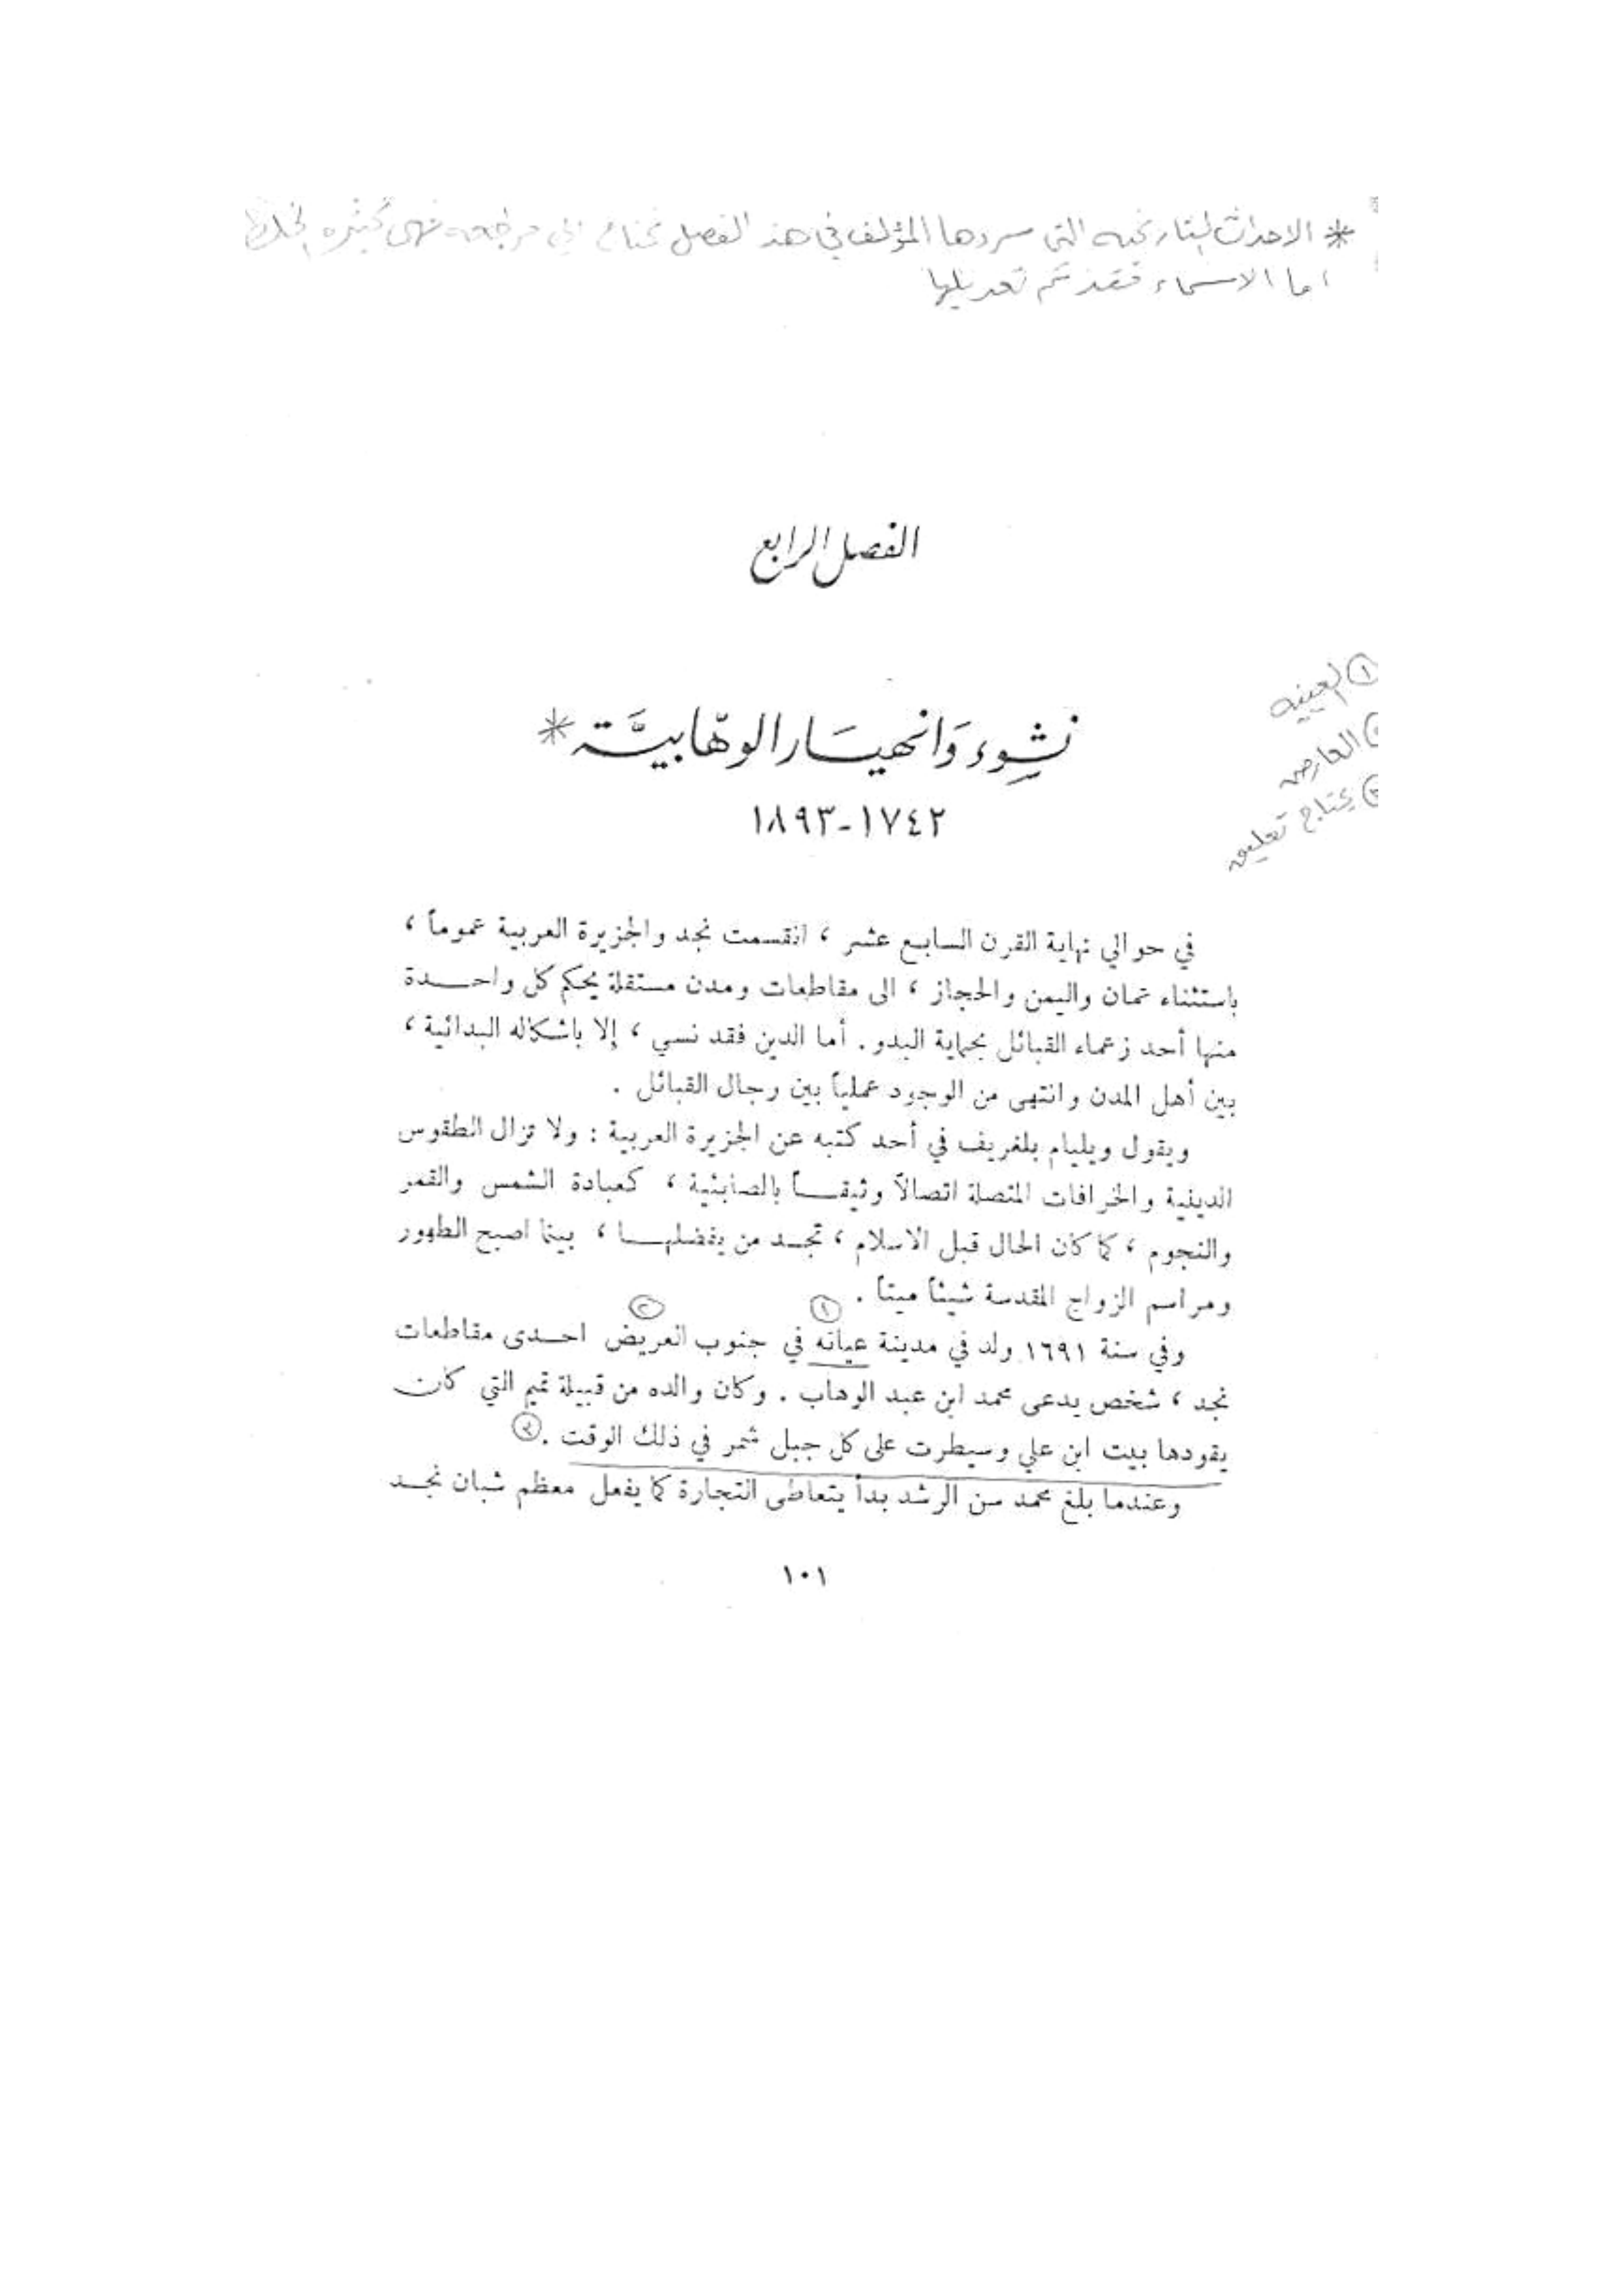 * الاحداث التاريخيه التى سردها المؤلف في هذ الفصل تحتاج الي مراجعه فهى كثيره الخلط
اما الاسماء فقد تم تعديلها
الفصل الرابع
① العيينه
② العارض
③ يحتاج تعليق
نشوء وَانهيَار الوهّابيَّة *
١٧٤٢-١٨٩٣
في حوالي نهاية القرن السابع عشر ، انقسمت نجد والجزيرة العربية عموماً ،
باستثناء عمان واليمن والحجاز ، الى مقاطعات ومدن مستقلة يحكم كل واحدة
منها أحد زعماء القبائل بحماية البدو . أما الدين فقد نسي ، إلا باشكاله البدائية ،
بين أهل المدن وانتهى من الوجود عملياً بين رجال القبائل .
ويقول ويليام بلغريف في أحد كتبه عن الجزيرة العربية : ولا تزال الطقوس
الدينية والخرافات المتصلة اتصالاً وثيقاً بالصابئية ، كعبادة الشمس والقمر
والنجوم ، كما كان الحال قبل الاسلام ، تجد من يفضلها ، بينما اصبح الطهور
ومراسم الزواج المقدسة شيئاً ميتاً .
① ②
وفي سنة ١٦٩١ ولد في مدينة عيانه في جنوب العريض احدى مقاطعات
نجد ، شخص يدعى محمد ابن عبد الوهاب . وكان والده من قبيلة تميم التي كان
يقودها بيت ابن علي وسيطرت على كل جبل شمر في ذلك الوقت . ③
وعندما بلغ محمد سن الرشد بدأ يتعاطى التجارة كما يفعل معظم شبان نجد
١٠١